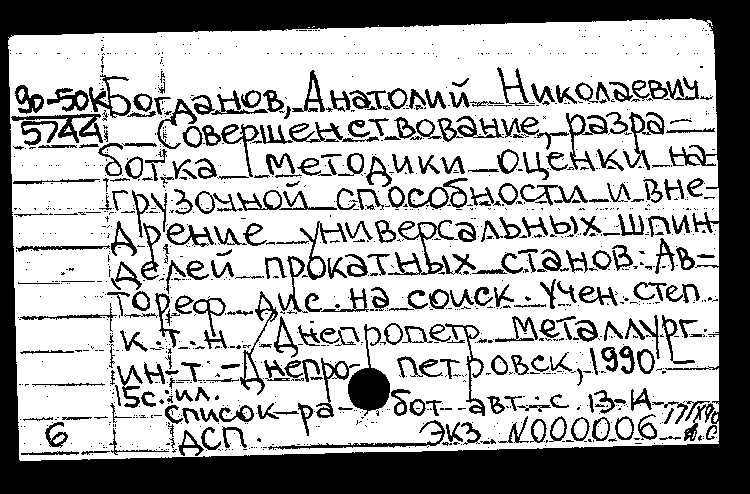 90-50К Богданов, Анатолий Николаевич
5744 Совершенствование, разра-
ботка методики оценки на-
грузочной способности и вне-
дрение универсальных шпин
делей прокатных станов: Ав-
тореф дис. на соиск. учен. степ
к.т.н. Днепропетр металлург.
ин-т. - Днепро- петровск, 1990 -
15с.: ил.
список ра- бот авт.: с. 13-14 17/X90
6 ДСП. ЭКЗ N000006 А.С